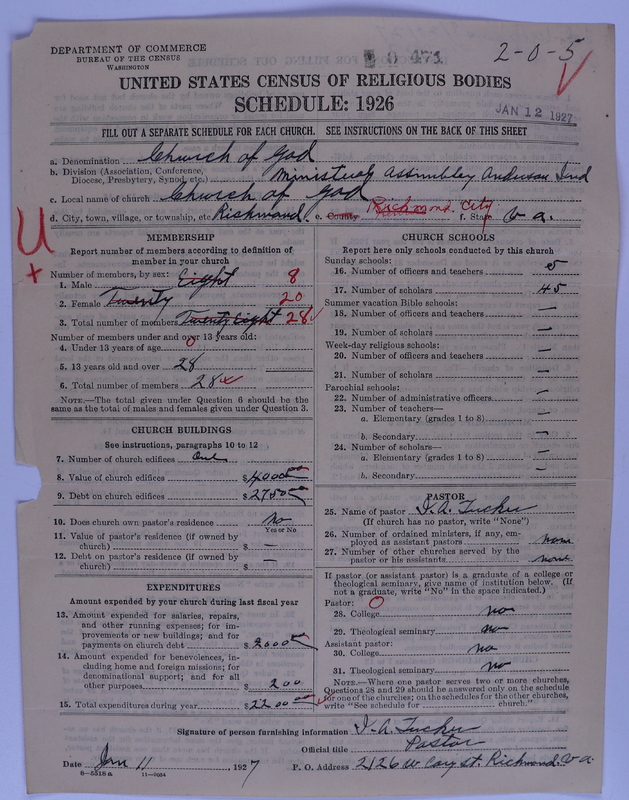 DEPARTMENT OF COMMERCE
BUREAU OF THE CENSUS
WASHINGTON
2-0-5
UNITED STATES CENSUS OF RELIGIOUS BODIES
SCHEDULE: 1926
JAN 12 1927
FILL OUT A SEPARATE SCHEDULE FOR EACH CHURCH. SEE INSTRUCTIONS ON THE BACK OF THIS SHEET
a. Denomination Church of God
b. Division (Association, Conference, Diocese, Presbytery, Synod, etc.) Ministerial Assimbley Anderson Ind
c. Local name of church Church of God
d. City, town, village, or township, etc Richmond. e. County Richmond City f. State Va.
U
+
MEMBERSHIP
Report number of members according to definition of member in your church
Number of members, by sex:
1. Male Eight 8
2. Female Twenty 20
3. Total number of members Twenty Eight 28
Number of members under and over 13 years old:
4. Under 13 years of age 0
5. 13 years old and over 28
6. Total number of members 28
NOTE.—The total given under Question 6 should be the same as the total of males and females given under Question 3.
CHURCH BUILDINGS
See instructions, paragraphs 10 to 12
7. Number of church edifices One
8. Value of church edifices $4000.00
9. Debt on church edifices $2750.00
10. Does church own pastor's residence No
Yes or No
11. Value of pastor's residence (if owned by church) $ —
12. Debt on pastor's residence (if owned by church) $ —
EXPENDITURES
Amount expended by your church during last fiscal year
13. Amount expended for salaries, repairs, and other running expenses; for improvements or new buildings; and for payments on church debt $2000.00
14. Amount expended for benevolences, including home and foreign missions; for denominational support; and for all other purposes $200
15. Total expenditures during year $2200.00
CHURCH SCHOOLS
Report here only schools conducted by this church
Sunday schools:
16. Number of officers and teachers 5
17. Number of scholars 45
Summer vacation Bible schools:
18. Number of officers and teachers —
19. Number of scholars —
Week-day religious schools:
20. Number of officers and teachers —
21. Number of scholars —
Parochial schools:
22. Number of administrative officers —
23. Number of teachers—
a. Elementary (grades 1 to 8) —
b. Secondary —
24. Number of scholars—
a. Elementary (grades 1 to 8) —
b. Secondary —
PASTOR
25. Name of pastor I. A. Tucker
(If church has no pastor, write "None")
26. Number of ordained ministers, if any, employed as assistant pastors none
27. Number of other churches served by the pastor or his assistants none
If pastor (or assistant pastor) is a graduate of a college or theological seminary, give name of institution below. (If not a graduate, write "No" in the space indicated.)
Pastor: 0
28. College no
29. Theological seminary no
Assistant pastor:
30. College no
31. Theological seminary no
NOTE.—Where one pastor serves two or more churches, Questions 28 and 29 should be answered only on the schedule for one of the churches; on the schedules for the other churches, write "See schedule for church."
Signature of person furnishing information I. A. Tucker
Official title Pastor
Date Jan 11, 1927 P. O. Address 2126 W Cary St. Richmond Va.
8-5518a 11-9034